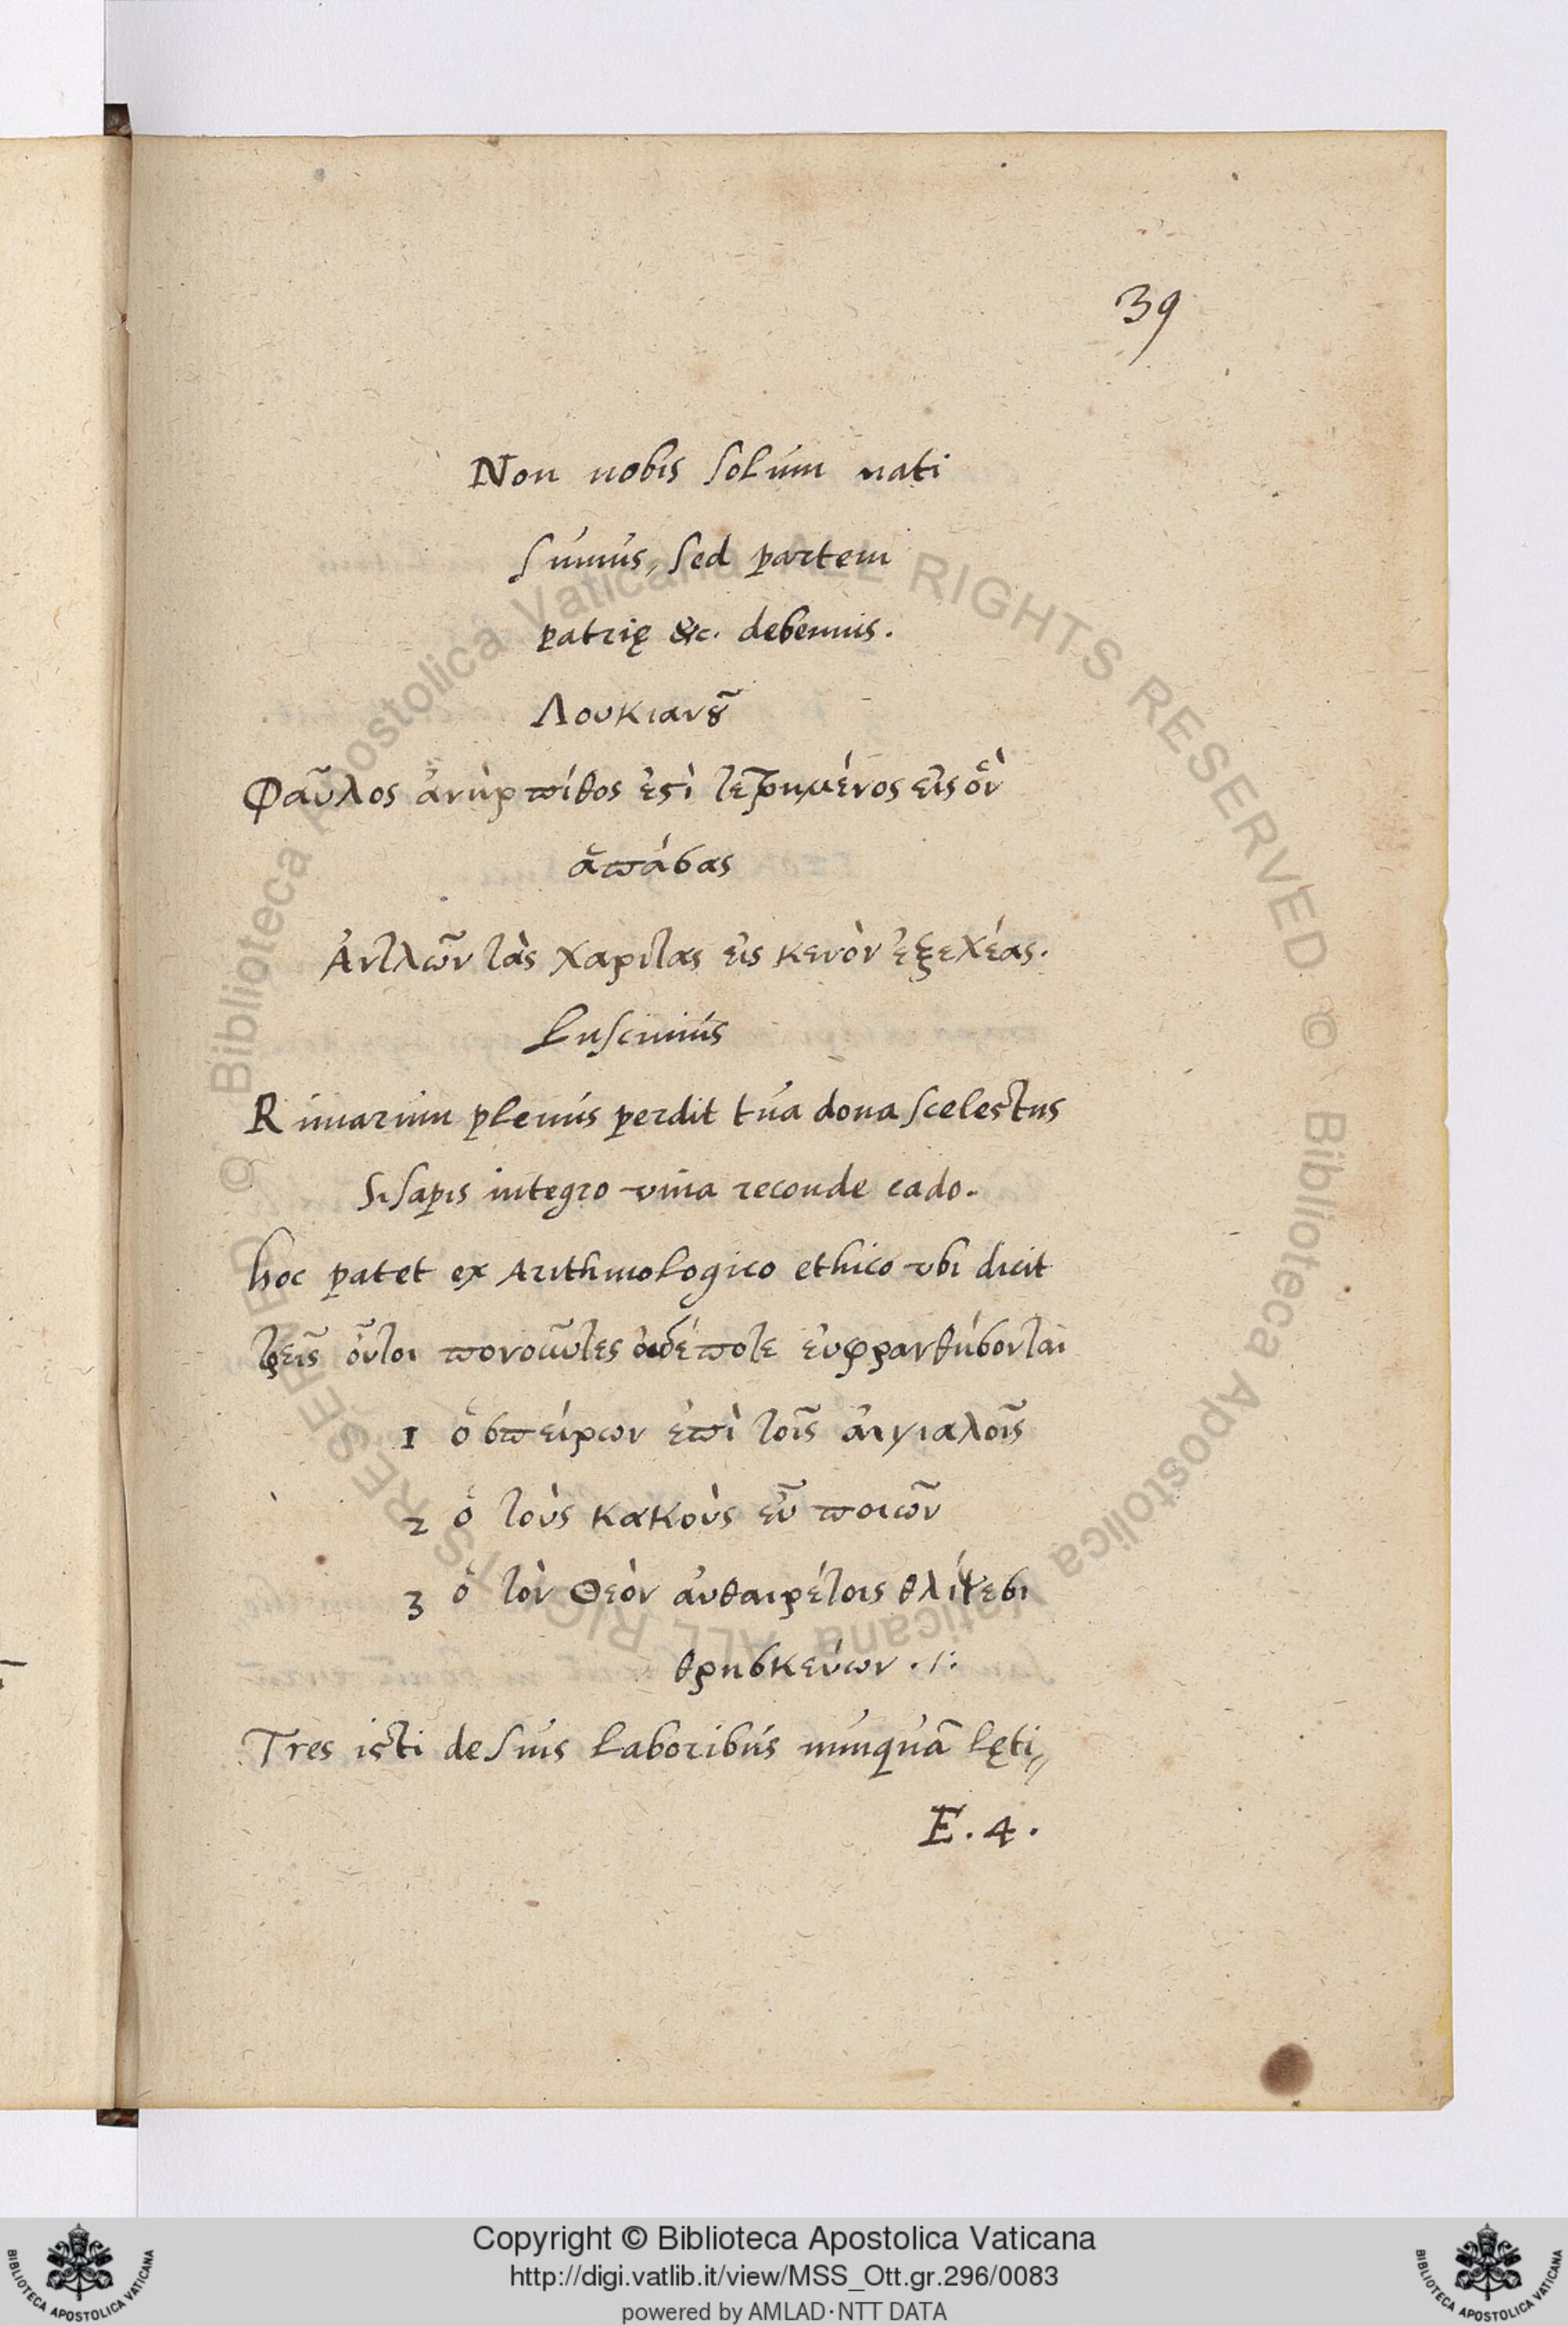 39
Non nobis solum nati
sumus, sed partem
patrię &c. debemus.
Λουκιανȣ͂
Φαῦλος ἀνὴρ πίθος ἐστὶ τετρημένος εἰς ὃν
ἁπάσας
Ἀντλῶν τὰς χαριτας εἰς κενὸν ἐξεχέας.
Luscinius
Rimarum plenus perdit tua dona scelestus
Si sapis integro vina reconde cado.
hoc patet ex Arithmologico ethico vbi dicit
τρεῖς οὗτοι πονοῦντες οὐδέποτε εὐφρανθήσονται
1 ὁ σπείρων ἐπὶ τοῖς αἰγιαλοῖς
2 ὁ τοὺς κακοὺς εὖ ποιῶν
3 ὁ τὸν Θεὸν αὐθαιρέτοις θλίψεσι
θρησκεύων ./:
Tres isti de suis laboribus nunquã lęti,,
E. 4.
Copyright © Biblioteca Apostolica Vaticana
http://digi.vatlib.it/view/MSS_Ott.gr.296/0083
powered by AMLAD·NTT DATA
BIBLIOTECA APOSTOLICA VATICANA
BIBLIOTECA APOSTOLICA VATICANA
© Biblioteca Apostolica Vaticana ALL RIGHTS RESERVED
© Biblioteca Apostolica Vaticana ALL RIGHTS RESERVED